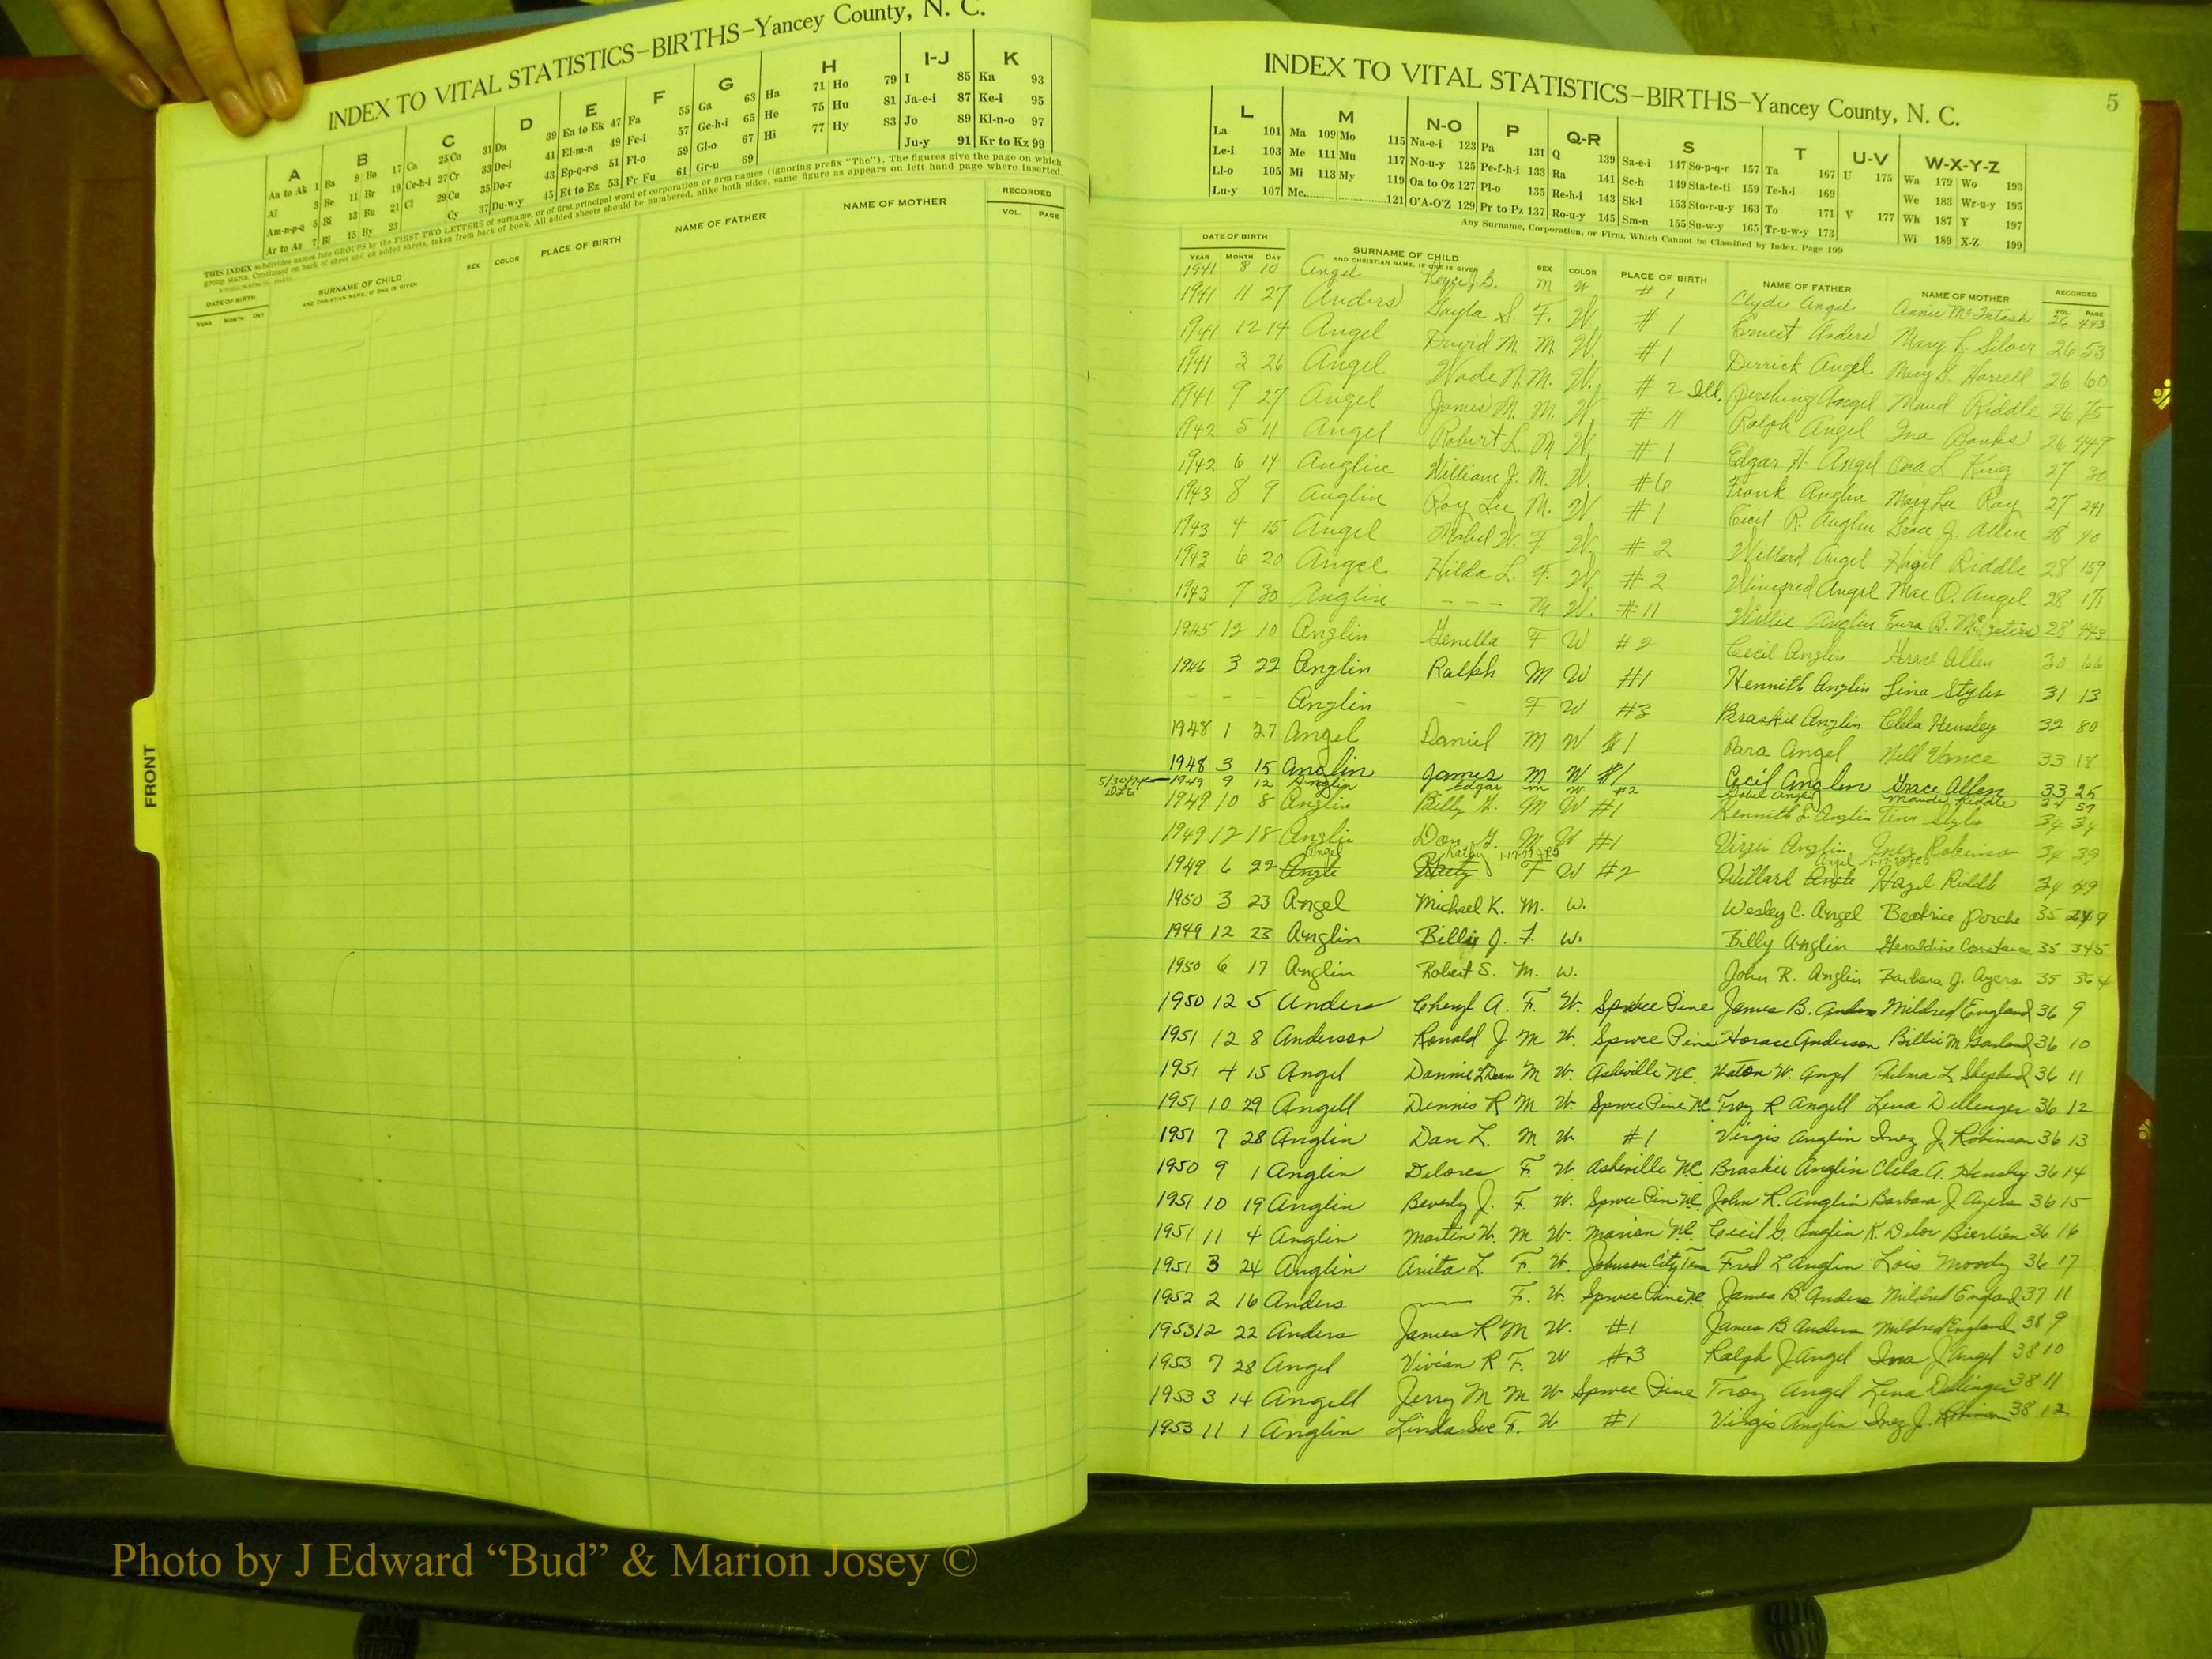 INDEX TO VITAL STATISTICS–BIRTHS–Yancey County, N. C.
A B C D E F G H I-J K
Aa to Ak 1 Ba 9 Bo 17 Ca 25 Co 31 Da 39 Ea to Ek 47 Fa 55 Ga 63 Ha 71 Ho 79 I 85 Ka 93
Al 3 Be 11 Br 19 Ce-h-i 27 Cr 33 De-i 41 El-m-n 49 Fe-i 57 Ge-h-i 65 He 75 Hu 81 Ja-e-i 87 Ke-i 95
Am-n-p-q 5 Bi 13 Bu 21 Cl 29 Cu 35 Do-r 43 Ep-q-r-s 51 Fl-o 59 Gl-o 67 Hi 77 Hy 83 Jo 89 Kl-n-o 97
Ar to Az 7 Bl 15 By 23 Cy 37 Du-w-y 45 Et to Ez 53 Fr Fu 61 Gr-u 69 Ju-y 91 Kr to Kz 99
THIS INDEX subdivides names into GROUPS by the FIRST TWO LETTERS of surname, or of first principal word of corporation or firm names (ignoring prefix "The"). The figures give the page on which
group starts. Continued on back of sheet and on added sheets, taken from back of book. All added sheets should be numbered, alike both sides, same figure as appears on left hand page where inserted.
DATE OF BIRTH SURNAME OF CHILD SEX COLOR PLACE OF BIRTH NAME OF FATHER NAME OF MOTHER RECORDED
YEAR MONTH DAY AND CHRISTIAN NAME, IF ONE IS GIVEN VOL. PAGE
FRONT
INDEX TO VITAL STATISTICS–BIRTHS–Yancey County, N. C.
5
L M N-O P Q-R S T U-V W-X-Y-Z
La 101 Ma 109 Mo 115 Na-e-i 123 Pa 131 Q 139 Sa-e-i 147 So-p-q-r 157 Ta 167 U 175 Wa 179 Wo 193
Le-i 103 Me 111 Mu 117 No-u-y 125 Pe-f-h-i 133 Ra 141 Sc-h 149 Sta-te-ti 159 Te-h-i 169 We 183 Wr-u-y 195
Ll-o 105 Mi 113 My 119 Oa to Oz 127 Pl-o 135 Re-h-i 143 Sk-l 153 Sto-r-u-y 163 To 171 V 177 Wh 187 Y 197
Lu-y 107 Mc 121 O'A-O'Z 129 Pr to Pz 137 Ro-u-y 145 Sm-n 155 Su-w-y 165 Tr-u-w-y 173 Wi 189 X-Z 199
Any Surname, Corporation, or Firm, Which Cannot be Classified by Index, Page 199
DATE OF BIRTH SURNAME OF CHILD SEX COLOR PLACE OF BIRTH NAME OF FATHER NAME OF MOTHER RECORDED
YEAR MONTH DAY AND CHRISTIAN NAME, IF ONE IS GIVEN VOL. PAGE
1941 8 10 Angel M W #1 Clyde Angel Annie McIntosh 26 443
1941 11 27 Anders Gayla S F. W #1 Ernest Anders Mary L Silver 26 53
1941 12 14 Angel David M. M. W. #1 Derrick Angel Mary G. Harrell 26 60
1941 3 26 Angel Wade N. M. W. #2 Ill. Pershing Angel Maud Riddle 26 75
1941 9 27 Angel James M. M. W #11 Ralph Angel Ina Banks 26 449
1942 5 11 Angel Robert L. M W. #1 Edgar H. Angel Ona L King 27 30
1942 6 14 Anglin William J. M. W. #6 Frank Anglin Mary Lee Ray 27 241
1943 8 9 Anglin Roy Lee M. W #1 Cecil R. Anglin Grace J. Allen 28 40
1943 4 15 Angel Mabel W. F. W. #2 Willard Angel Hazel Riddle 28 159
1943 6 20 Angel Hilda L. F. W. #2 Winegred Angel Mae O. Angel 28 171
1943 7 30 Anglin – – – M W. #11 Willie Anglin 28 443
1945 12 10 Anglin Genella F W #2 Cecil Anglin Grace Allen 30 66
1946 3 22 Anglin Ralph M W #1 Kennith Anglin Tina Styles 31 13
– – – Anglin – F W #3 Braskie Anglin Clela Hensley 32 80
1948 1 27 Angel Daniel M W #1 Para Angel Nell Vance 33 18
1948 3 15 Anglin James M W #1 Cecil Anglin Grace Allen 33 25
1949 9 12 Anglin Edgar M W #2 Anglin Maude Riddle 34 57
1949 10 8 Anglin Billy F. M W #1 Kenneth L Anglin Tina Styles 34 34
1949 12 18 Anglin Don G. M W #1 Virgis Anglin Inez Robinson 34 39
Angel Kathy Angel
1949 6 22 Angle F W #2 Willard Angle Hazel Riddle 34 49
1950 3 23 Angel Michael K. M. W. Wesley C. Angel Beatrice Porche 35 249
1949 12 23 Anglin Billie J. F. W. Billy Anglin Geraldine Constance 35 345
1950 6 17 Anglin Robert S. M. W. John R. Anglin Barbara J. Ayers 35 364
1950 12 5 Anders Cheryl A. F. W. Spruce Pine James B. Anders Mildred England 36 9
1951 12 8 Anderson Ronald J M W. Spruce Pine Horace Anderson Billie M Garland 36 10
1951 4 15 Angel Dannie L Dean M W. Asheville N.C. W. Angel Thelma L Shepherd 36 11
1951 10 29 Angell Dennis R M W. Spruce Pine N.C. Troy R Angell Lena Dellinger 36 12
1951 7 28 Anglin Dan L. M W #1 Virgis Anglin Inez J. Robinson 36 13
1950 9 1 Anglin Delores F. W. Asheville N.C. Braskie Anglin Clela A. Hensley 36 14
1951 10 19 Anglin Beverly J. F. W. Spruce Pine N.C. John R. Anglin Barbara J Ayers 36 15
1951 11 4 Anglin Martin W. M W. Marion N.C. Cecil G. Anglin K. Delor Bierlien 36 16
1951 3 24 Anglin Anita L. F. W. Johnson City Tenn Fred L Anglin Lois Moody 36 17
1952 2 16 Anders — F. W. Spruce Pine N.C. James B. Anders Mildred England 37 11
1953 12 22 Anders James R M W. #1 James B Anders Mildred England 38 9
1953 7 28 Angel Vivian R F. W #3 Ralph J Angel Ina J Angel 38 10
1953 3 14 Angell Jerry M M W Spruce Pine Troy Angel Lena Dellinger 38 11
1953 11 1 Anglin Linda Sue F. W #1 Virgis Anglin Inez J. Robinson 38 12
Photo by J Edward “Bud” & Marion Josey ©